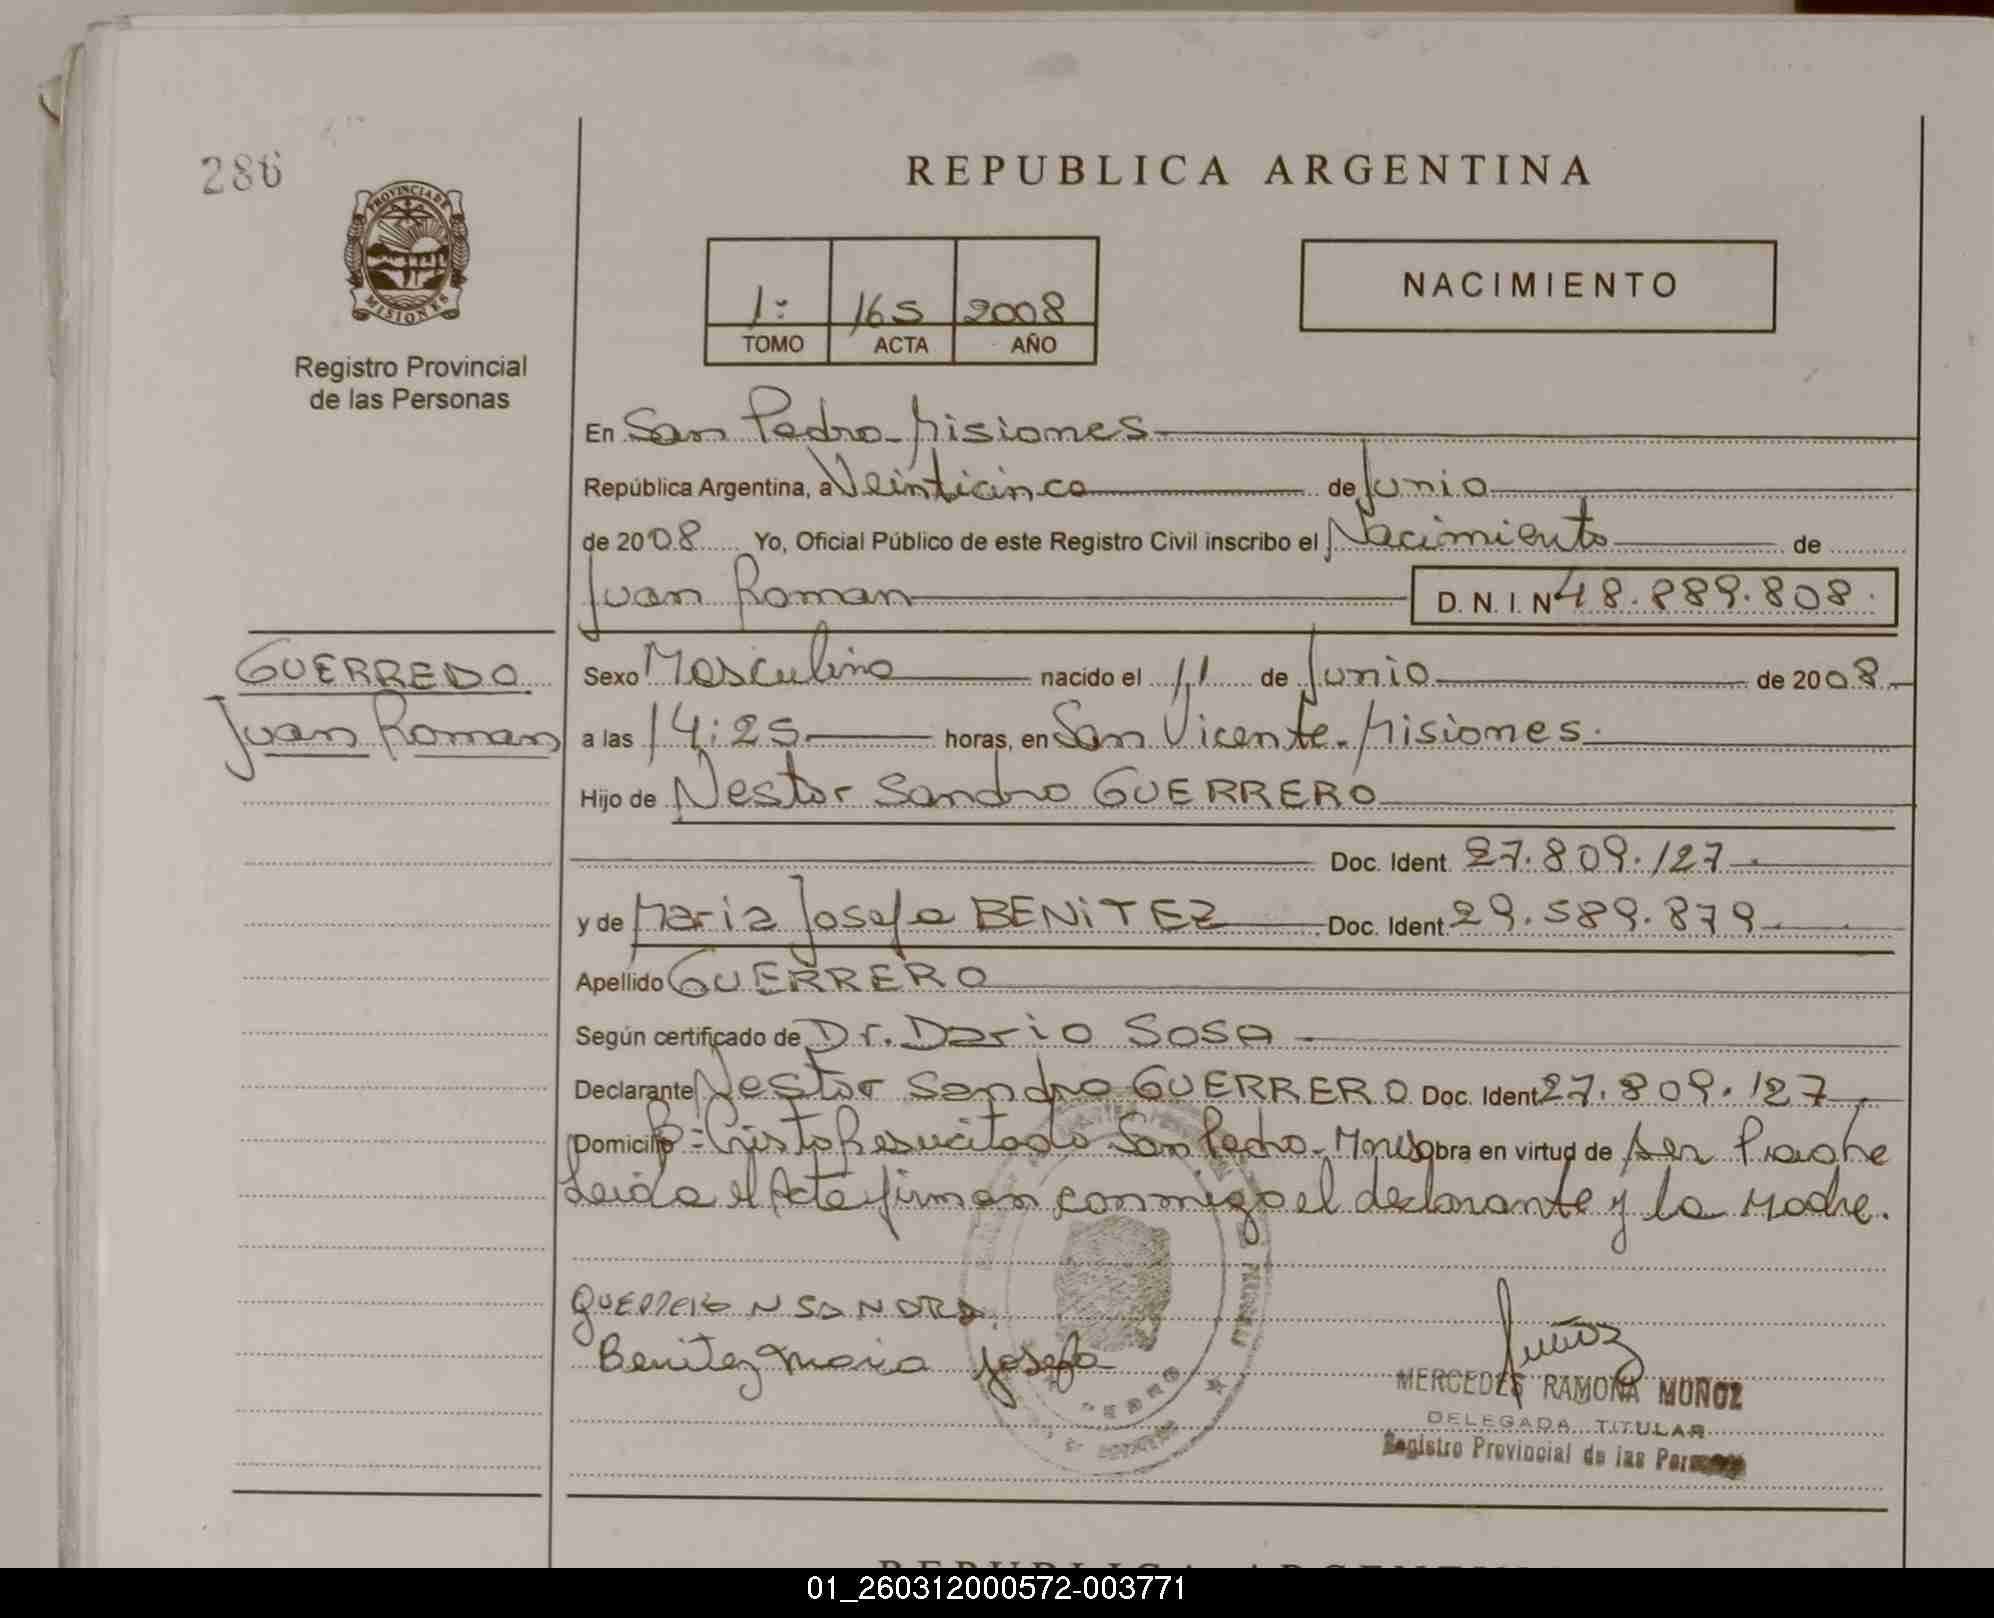 286
REPUBLICA ARGENTINA
PROVINCIA DE
MISIONES
Registro Provincial
de las Personas
1º 165 2008
TOMO ACTA AÑO
NACIMIENTO
En San Pedro - Misiones
República Argentina, a Veinticinco de Junio
de 2008 Yo, Oficial Público de este Registro Civil inscribo el Nacimiento de
Juan Roman D.N.I. Nº 48.889.808.
GUERRERO
Juan Roman
Sexo Masculino nacido el 11 de Junio de 2008
a las 14:25 horas, en San Vicente - Misiones.
Hijo de Nestor Sandro GUERRERO
Doc. Ident. 27.809.127
y de Maria Josefa BENiTEZ Doc. Ident. 29.589.879
Apellido GUERRERO
Según certificado de Dr. Dario SOSA
Declarante Nestor Sandro GUERRERO Doc. Ident 27.809.127
Domicilio Bº Cristo Resucitado San Pedro - Mnes obra en virtud de ser Padre
Leida el Acta firman conmigo el declarante y la Madre.
GUERRERO N SANDRO.
Benitez Maria Josefa
Muñoz
MERCEDES RAMONA MUÑOZ
DELEGADA TITULAR
Registro Provincial de las Personas
REPUBLICA ARGENTINA
01_260312000572-003771